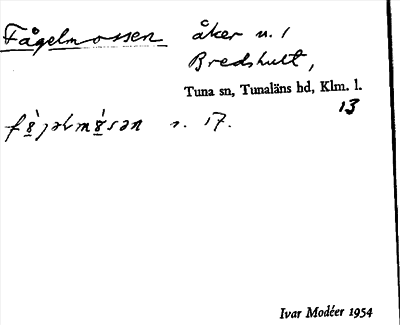 Fågelmossen åker u. 1
Bredshult,
Tuna sn, Tunaläns hd, Klm. l.
13
s. 17.
Ivar Modéer 1954